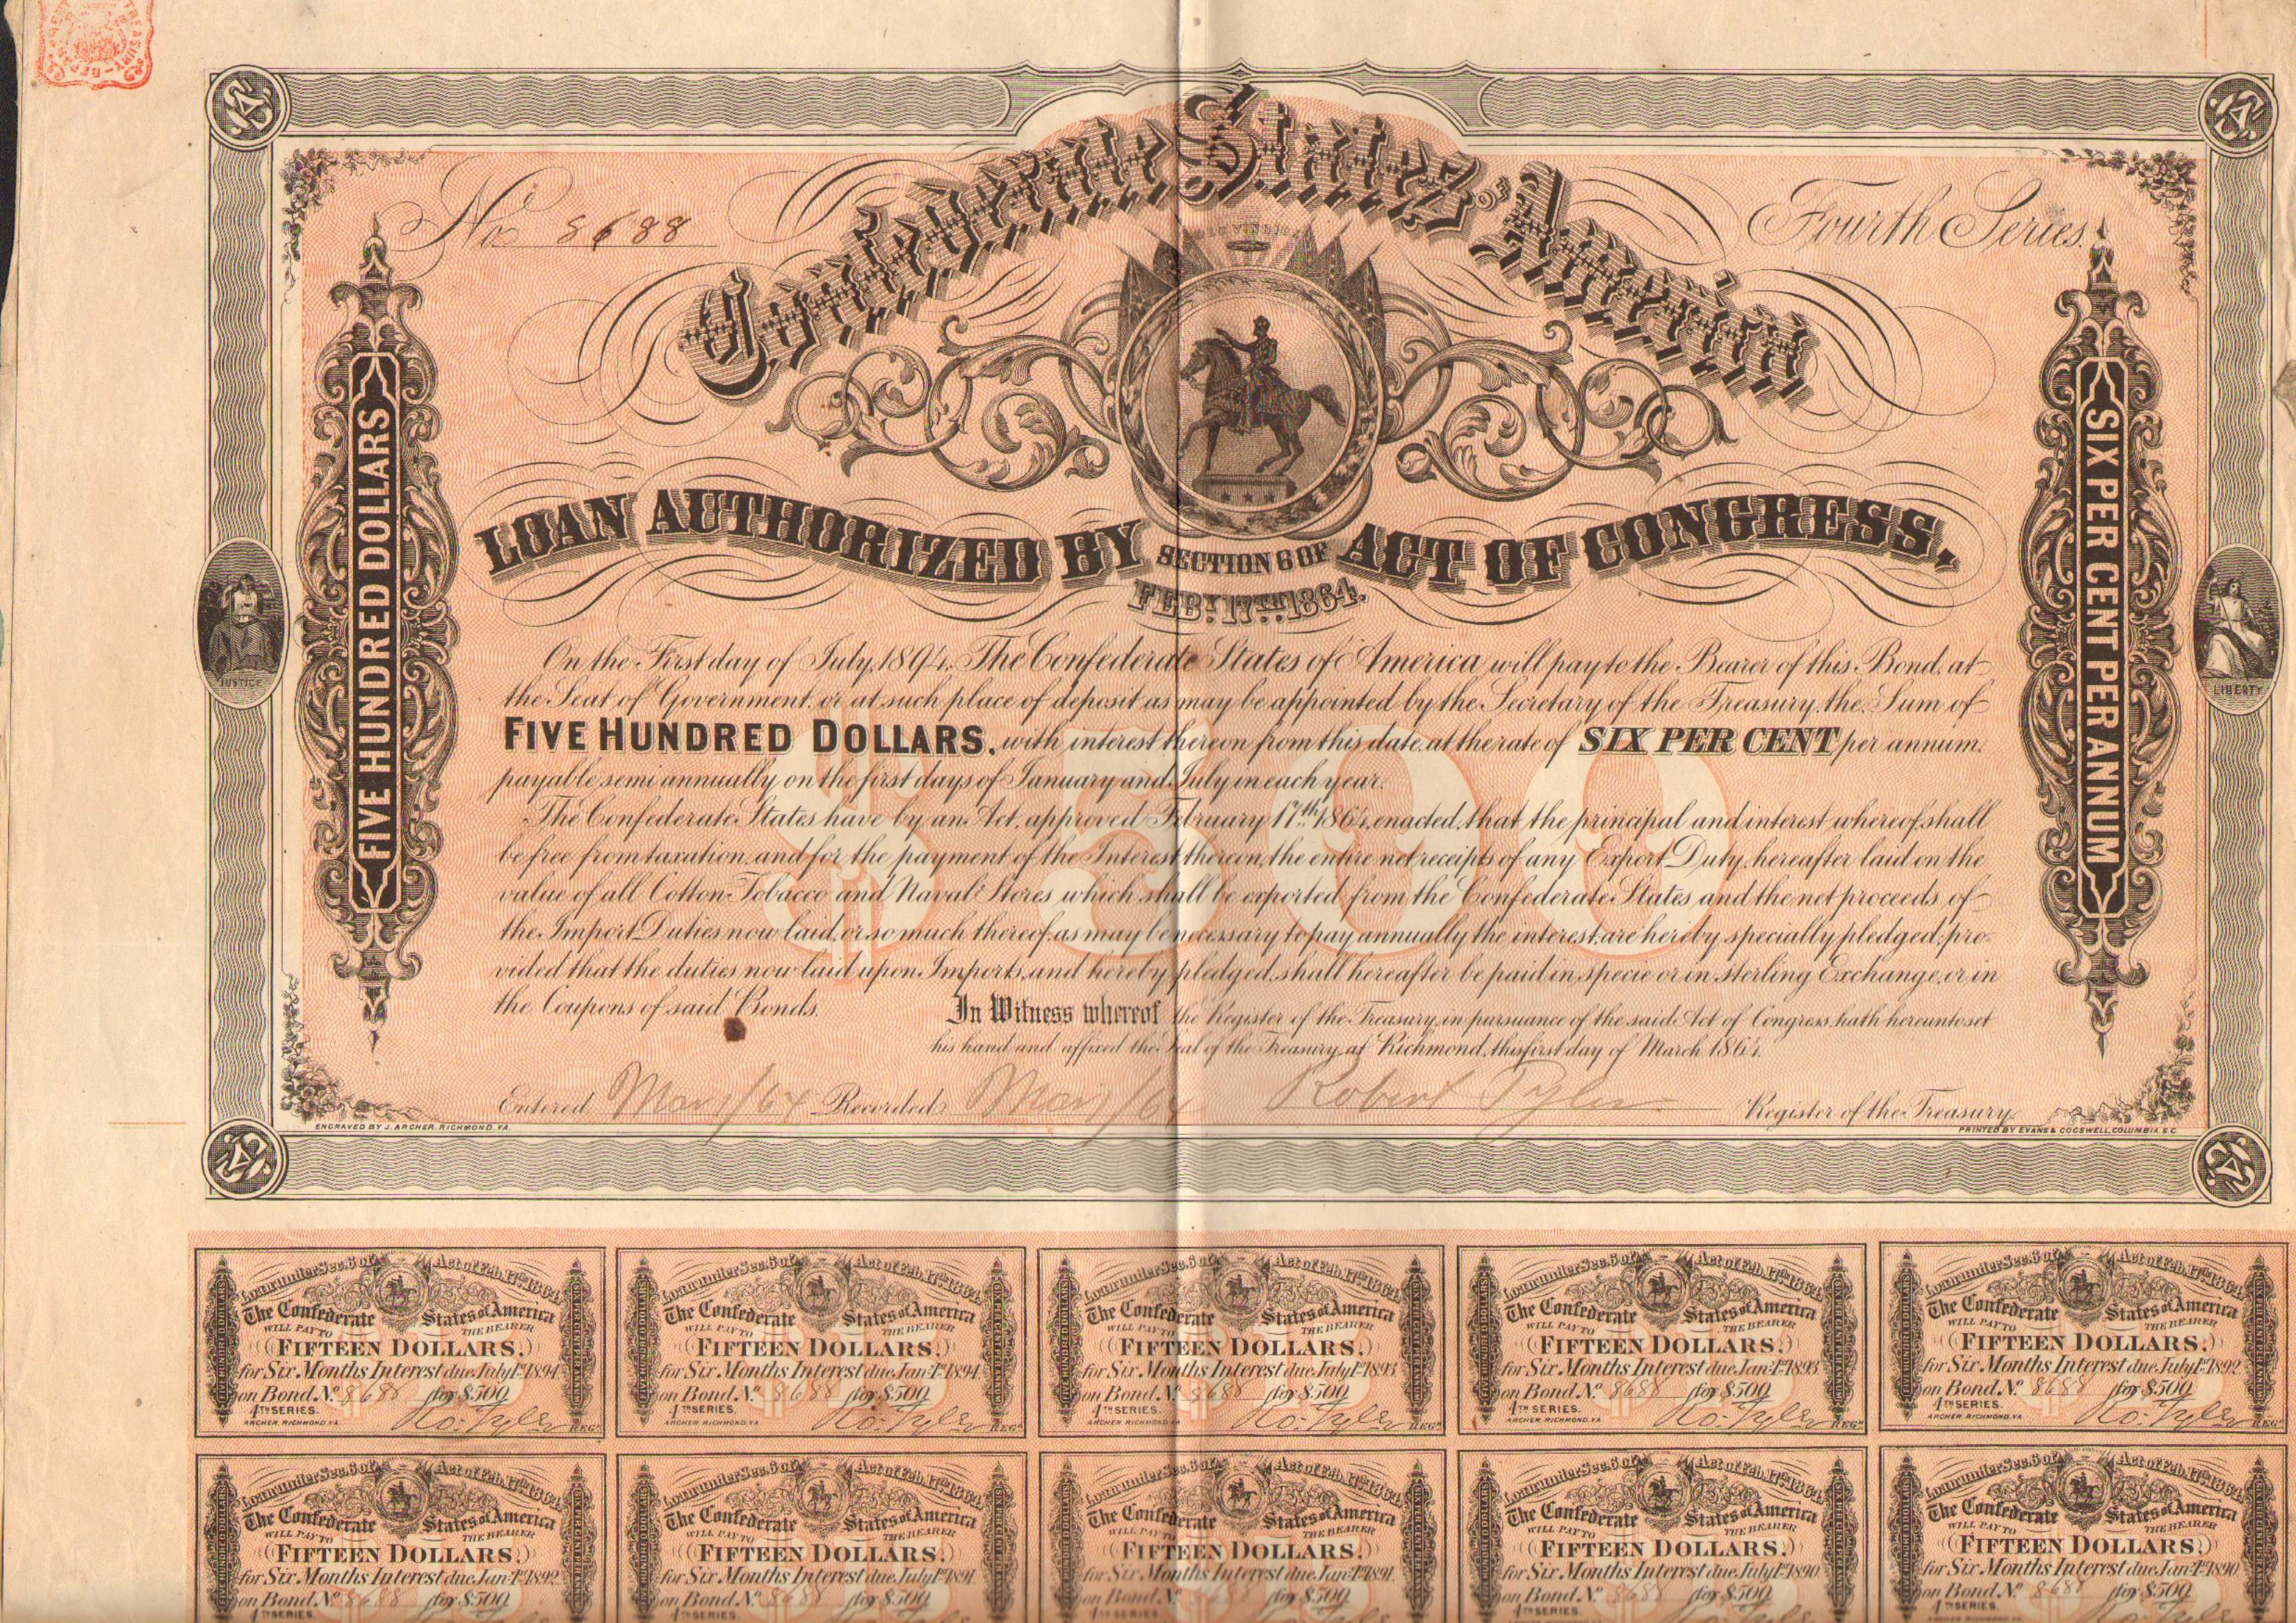 TREASURY DEPAR
Confederate States of America
No 8688
Fourth Series.
DEO VINDICE
FIVE HUNDRED DOLLARS
SIX PER CENT PER ANNUM
LOAN AUTHORIZED BY SECTION 6 OF ACT OF CONGRESS,
FEBY. 17TH. 1864.
JUSTICE
LIBERTY
$500
On the First day of July, 1894, The Confederate States of America will pay to the Bearer of this Bond, at
the Seat of Government, or at such place of deposit as may be appointed by the Secretary of the Treasury, the Sum of
FIVE HUNDRED DOLLARS, with interest thereon from this date, at the rate of SIX PER CENT per annum,
payable semi annually on the first days of January and July in each year.
The Confederate States have by an Act, approved February 17th. 1864, enacted, that the principal and interest whereof shall
be free from taxation, and for the payment of the Interest thereon, the entire net receipts of any Export Duty, hereafter laid on the
value of all Cotton Tobacco and Naval Stores which shall be exported from the Confederate States and the net proceeds of
the Import Duties now laid, or so much thereof as may be necessary to pay annually the interest, are hereby specially pledged: pro-
vided that the duties now laid upon Imports, and hereby pledged, shall hereafter be paid in specie or in Sterling Exchange, or in
the Coupons of said Bonds.
In Witness whereof the Register of the Treasury, in pursuance of the said Act of Congress, hath hereunto set
his hand and affixed the Seal of the Treasury, at Richmond, this first day of March 1864.
Entered Mar 1/64 Recorded Mar 1/64 Robert Tyler Register of the Treasury.
ENGRAVED BY J. ARCHER, RICHMOND. VA.
PRINTED BY EVANS & COGSWELL, COLUMBIA S.C.
Loan under Sec. 6 of Act of Feb. 17th 1864
The Confederate States of America
WILL PAY TO THE BEARER
FIFTEEN DOLLARS,
for Six Months Interest due July 1st 1894
on Bond No. 8688 for $500
4TH SERIES.
Ro: Tyler REGR
ARCHER, RICHMOND, VA
FIVE HUNDRED DOLLARS
SIX PER CENT PER ANNUM
Loan under Sec. 6 of Act of Feb. 17th 1864
The Confederate States of America
WILL PAY TO THE BEARER
FIFTEEN DOLLARS,
for Six Months Interest due Jan: 1st 1894
on Bond No. 8688 for $500
4TH SERIES.
Ro: Tyler REGR
ARCHER, RICHMOND, VA
Loan under Sec. 6 of Act of Feb. 17th 1864
The Confederate States of America
WILL PAY TO THE BEARER
FIFTEEN DOLLARS,
for Six Months Interest due July 1st 1893
on Bond No. 8688 for $500
4TH SERIES.
Ro: Tyler REGR
ARCHER RICHMOND VA
Loan under Sec. 6 of Act of Feb. 17th 1864
The Confederate States of America
WILL PAY TO THE BEARER
FIFTEEN DOLLARS,
for Six Months Interest due Jan: 1st 1893
on Bond No. 8688 for $500
4TH SERIES.
Ro: Tyler REGR
ARCHER RICHMOND, VA
Loan under Sec. 6 of Act of Feb. 17th 1864
The Confederate States of America
WILL PAY TO THE BEARER
FIFTEEN DOLLARS,
for Six Months Interest due July 1st 1892
on Bond No. 8688 for $500
4TH SERIES.
Ro: Tyler REGR
ARCHER, RICHMOND, VA
Loan under Sec. 6 of Act of Feb. 17th 1864
The Confederate States of America
WILL PAY TO THE BEARER
FIFTEEN DOLLARS,
for Six Months Interest due Jan: 1st 1892
on Bond No. 8688 for $500
4TH SERIES.
Loan under Sec. 6 of Act of Feb. 17th 1864
The Confederate States of America
WILL PAY TO THE BEARER
FIFTEEN DOLLARS,
for Six Months Interest due July 1st 1891
on Bond No. 8688 for $500
4TH SERIES.
Loan under Sec. 6 of Act of Feb. 17th 1864
The Confederate States of America
WILL PAY TO THE BEARER
FIFTEEN DOLLARS,
for Six Months Interest due Jan: 1st 1891
on Bond No. 8688 for $500
4TH SERIES.
Loan under Sec. 6 of Act of Feb. 17th 1864
The Confederate States of America
WILL PAY TO THE BEARER
FIFTEEN DOLLARS,
for Six Months Interest due July 1st 1890
on Bond No. 8688 for $500
4TH SERIES.
Loan under Sec. 6 of Act of Feb. 17th 1864
The Confederate States of America
WILL PAY TO THE BEARER
FIFTEEN DOLLARS,
for Six Months Interest due Jan: 1st 1890
on Bond No. 8688 for $500
4TH SERIES.